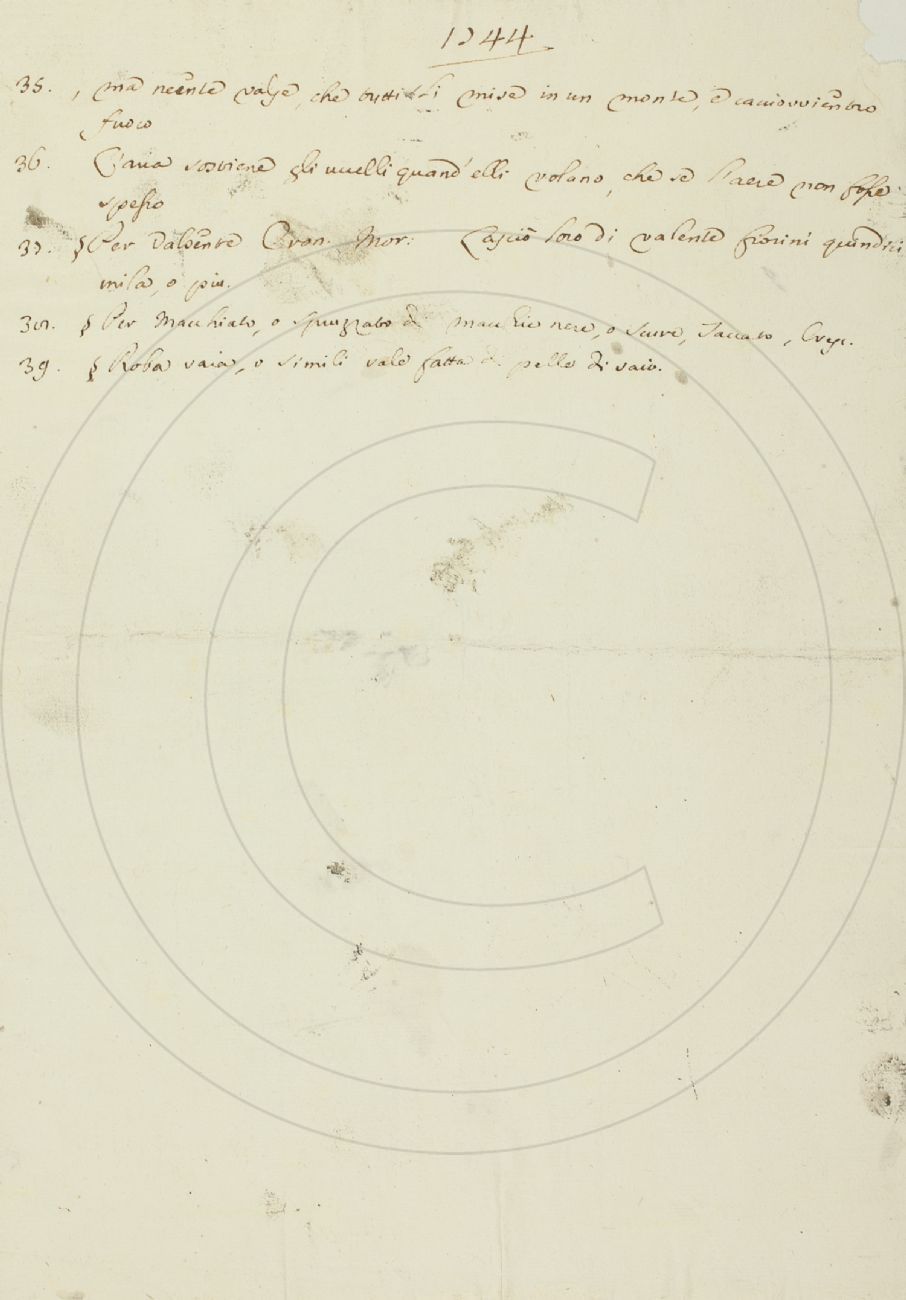 1744
35. , ma neente valse, che tutti li mise in un monte, e cacciovvi entro
fuoco
36. L'aria sostiene gli uccelli quand' elli volano, che se l'aere non fosse
spesso
37. § Per Valsente Cron. Mor: Lasciò loro di valente fiorini quindici
mila, o piu.
38. § Per Macchiato, o spruzzato di macchie nere, o scure,
39. § Roba vaia, o simili vale fatta di pelle di vaio.